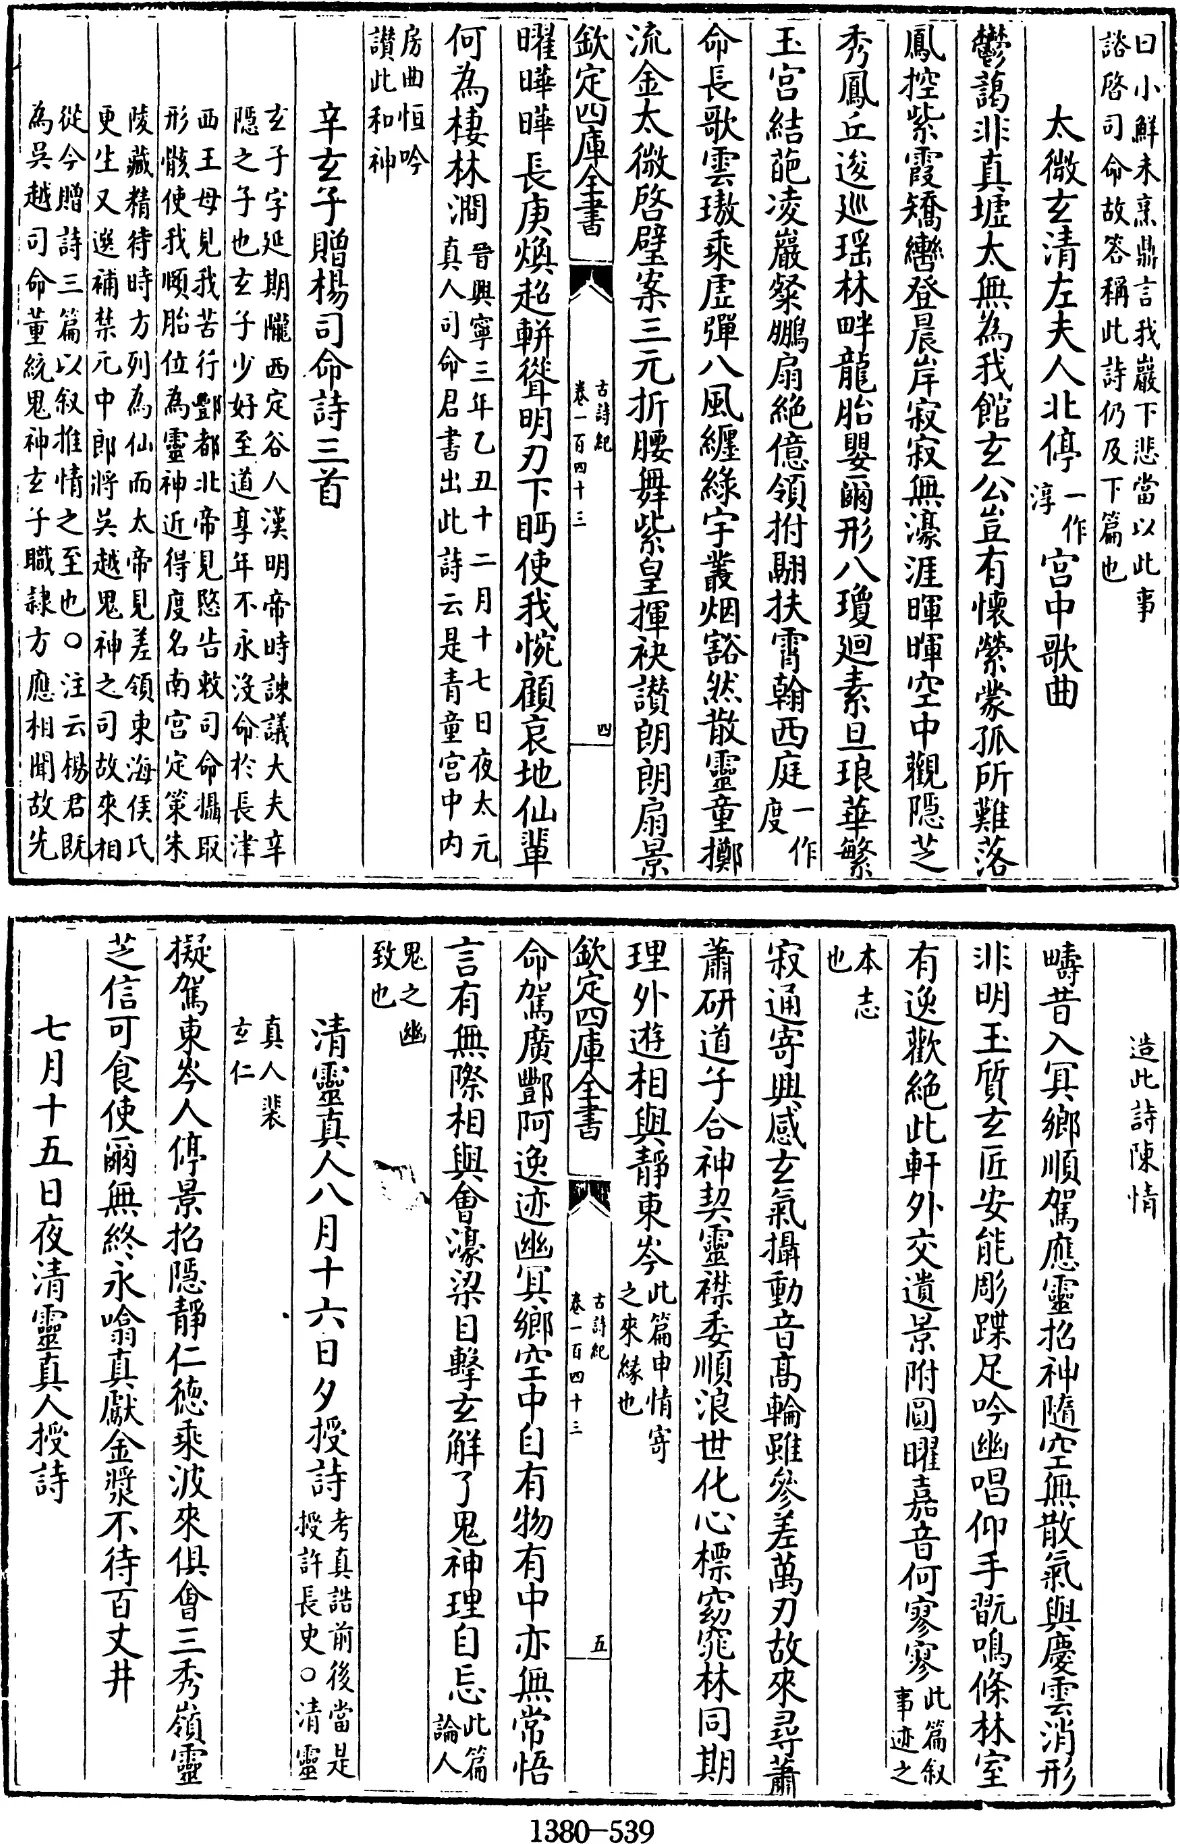 曰小鮮未烹鼎言我巖下悲當以此事
諮啓司命故答稱此詩仍及下篇也
太微玄清左夫人北停一作淳宫中歌曲
鬱藹非真墟太無為我館玄公豈有懷縈蒙孤所難落
鳳控紫霞矯轡登晨岸寂寂無濠涯暉暉空中觀隱芝
秀鳳丘逡巡瑶林畔龍胎嬰爾形八瓊廻素旦琅華繁
玉宮結葩凌巖粲鵬扇絶億領拊翮扶霄翰西庭一作度
命長歌雲璈乘虚彈八風纏綠宇叢烟豁然散靈童擲
流金太微啓壁案三元折腰舞紫皇揮袂讃朗朗扇景
欽定四庫全書
古詩紀
卷一百四十三
四
曜曄曄長庚煥超軿聳明刃下眄使我惋顧哀地仙輩
何為棲林澗晉興寧三年乙丑十二月十七日夜太元
真人司命君書出此詩云是青童宫中内
房曲恒吟
讃此和神
辛玄子贈楊司命詩三首
玄子字延期隴西定谷人漢明帝時諫議大夫辛
隱之子也玄子少好至道享年不永沒命於長津
西王母見我苦行酆都北帝見愍告敕司命攝取
形骸使我頤胎位為靈神近得度名南宫定策朱
陵藏精待時方列為仙而太帝見差領東海侯氏
更生又選補禁元中郎將吳越鬼神之司故來相
從今贈詩三篇以叙推情之至也〇注云楊君既
為吳越司命董統鬼神玄子職隷方應相聞故先
造此詩陳情
疇昔入冥鄉順駕應靈招神隨空無散氣與慶雲消形
非明玉質玄匠安能彫蹀足吟幽唱仰手翫鳴條林室
有逸歡絶此軒外交遺景附圓曜嘉音何寥寥此篇叙
事迹之
本志
也
寂通寄興感玄氣攝動音高輪雖參差萬刃故來尋蕭
蕭研道子合神契靈襟委順浪世化心標窈窕林同期
理外遊相與靜東岑此篇申情寄
之來緣也
欽定四庫全書
古詩紀
卷一百四十三
五
命駕廣酆阿逸迹幽冥鄉空中自有物有中亦無常悟
言有無際相與會濠梁目擊玄解了鬼神理自忘此篇
論人
鬼之幽
致也
清靈真人八月十六日夕授詩考真誥前後當是
授許長史〇清靈
真人裴
玄仁
擬駕東岑人停景招隱靜仁德乘波來俱會三秀嶺靈
芝信可食使爾無終永喻真獻金漿不待百丈井
七月十五日夜清靈真人授詩
1380-539